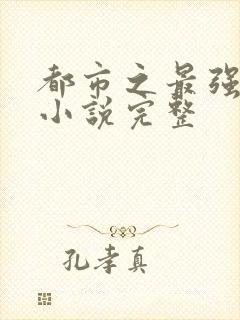 都市之最强
小说完整
孔孝真